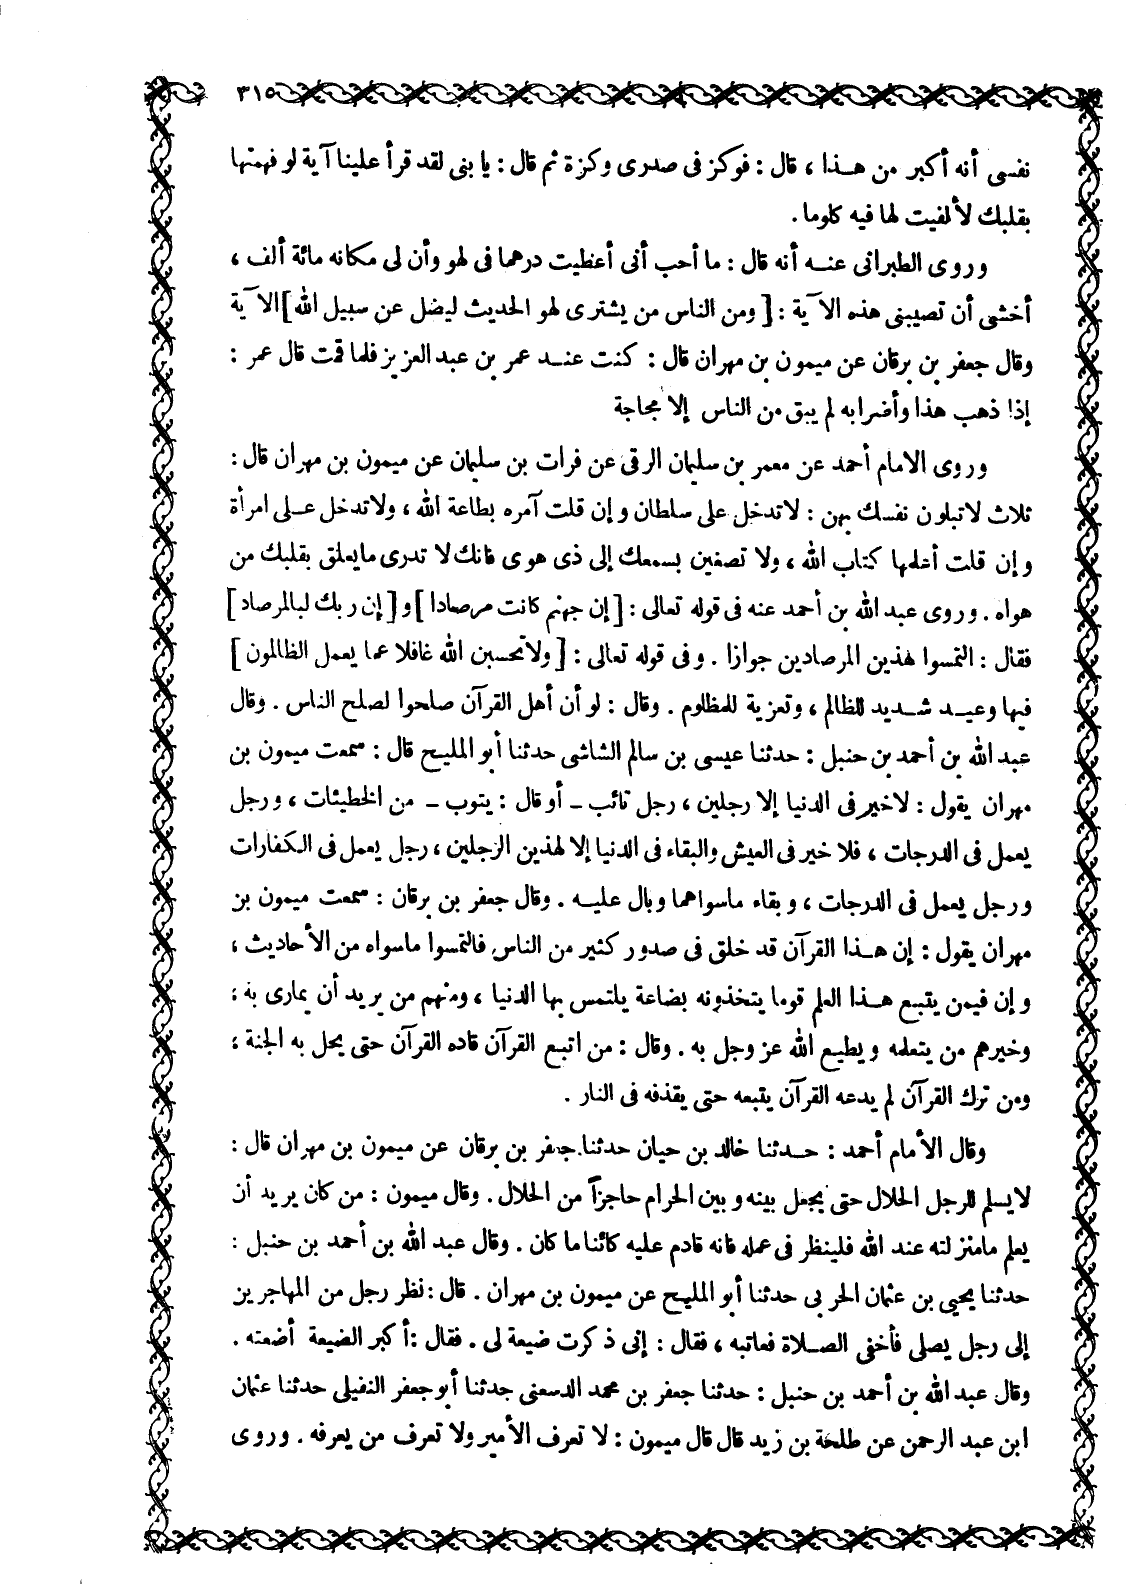 ٣١٥
نفسى أنه أكبر من هـذا ، قال : فوكز فى صدرى وكزة ثم قال : يا بنى لقد قرأ علينا آية لو فهمتها
بقلبك لألفيت لها فيه كلوما .
وروى الطبرانى عنـه أنه قال : ما أحب أنى أعظيت درهما فى لهو وأن لى مكانه مائة ألف ،
أخشى أن تصيبنى هذه الآية : [ ومن الناس من يشترى لهو الحديث ليضل عن سبيل الله ] الآية
وقال جعفر بن برقان عن ميمون بن مهران قال : كنت عنـد عمر بن عبد العزيز فلما قمت قال عمر :
إذا ذهب هذا وأضرابه لم يبق من الناس إلا مجاجة
وروى الامام أحمد عن معمر بن سليمان الرقى عن فرات بن سليمان عن ميمون بن مهران قال :
ثلاث لا تبلون نفسك بهن : لا تدخل على سلطان وإن قلت آمره بطاعة الله ، ولا تدخل عـلى امرأة
وإن قلت أعلمها كتاب الله ، ولا تصغين بسمعك إلى ذى هوى فانك لا تدرى ما يعلق بقلبك من
هواه . وروى عبد الله بن أحمد عنه فى قوله تعالى : [ إن جهنم كانت مرصادا ] و [ إن ربك لبالمرصاد ]
فقال : التمسوا لهذين المرصادين جوازا . وفى قوله تعالى : [ ولا تحسبن الله غافلا عما يعمل الظالمون ]
فيها وعيـد شـديد للظالم ، وتعزية للمظلوم . وقال : لو أن أهل القرآن صلحوا لصلح الناس . وقال
عبد الله بن أحمد بن حنبل : حدثنا عيسى بن سالم الشاشى حدثنا أبو المليح قال : سمعت ميمون بن
مهران يقول : لا خير فى الدنيا إلا رجلين ، رجل تائب ـ أو قال : يتوب ـ من الخطيئات ، ورجل
يعمل فى الدرجات ، فلا خير فى العيش والبقاء فى الدنيا إلا لهذين الرجلين ، رجل يعمل فى الكفارات
ورجل يعمل فى الدرجات ، وبقاء ما سواهما وبال عليـه . وقال جعفر بن برقان : سمعت ميمون بن
مهران يقول : إن هـذا القرآن قد خلق فى صدور كثير من الناس فالتمسوا ما سواه من الأحاديث ،
وإن فيمن يتبع هـذا العلم قوما يتخذونه بضاعة يلتمس بها الدنيا ، ومنهم من يريد أن يمارى به ،
وخيرهم من يتعلمه ويطيع الله عز وجل به . وقال : من اتبع القرآن قاده القرآن حتى يحل به الجنة ،
ومن ترك القرآن لم يدعه القرآن يتبعه حتى يقذفه فى النار .
وقال الأمام أحمد : حـدثنا خالد بن حيان حدثنا جعفر بن برقان عن ميمون بن مهران قال :
لا يسلم للرجل الحلال حتى يجعل بينه وبين الحرام حاجزاً من الحلال . وقال ميمون : من كان يريد أن
يعلم ما منزلته عند الله فلينظر فى عمله فانه قادم عليه كائنا ما كان . وقال عبد الله بن أحمد بن حنبل :
حدثنا يحيى بن عثمان الحربى حدثنا أبو المليح عن ميمون بن مهران . قال : نظر رجل من المهاجرين
إلى رجل يصلى فأخفى الصـلاة فعاتبه ، فقال : إنى ذكرت ضيعة لى . فقال : أكبر الضيعة أضعته .
وقال عبد الله بن أحمد بن حنبل : حدثنا جعفر بن محمد الدسعنى حدثنا أبو جعفر النفيلى حدثنا عثمان
ابن عبد الرحمن عن طلحة بن زيد قال قال ميمون : لا تعرف الأمير ولا تعرف من يعرفه . وروى